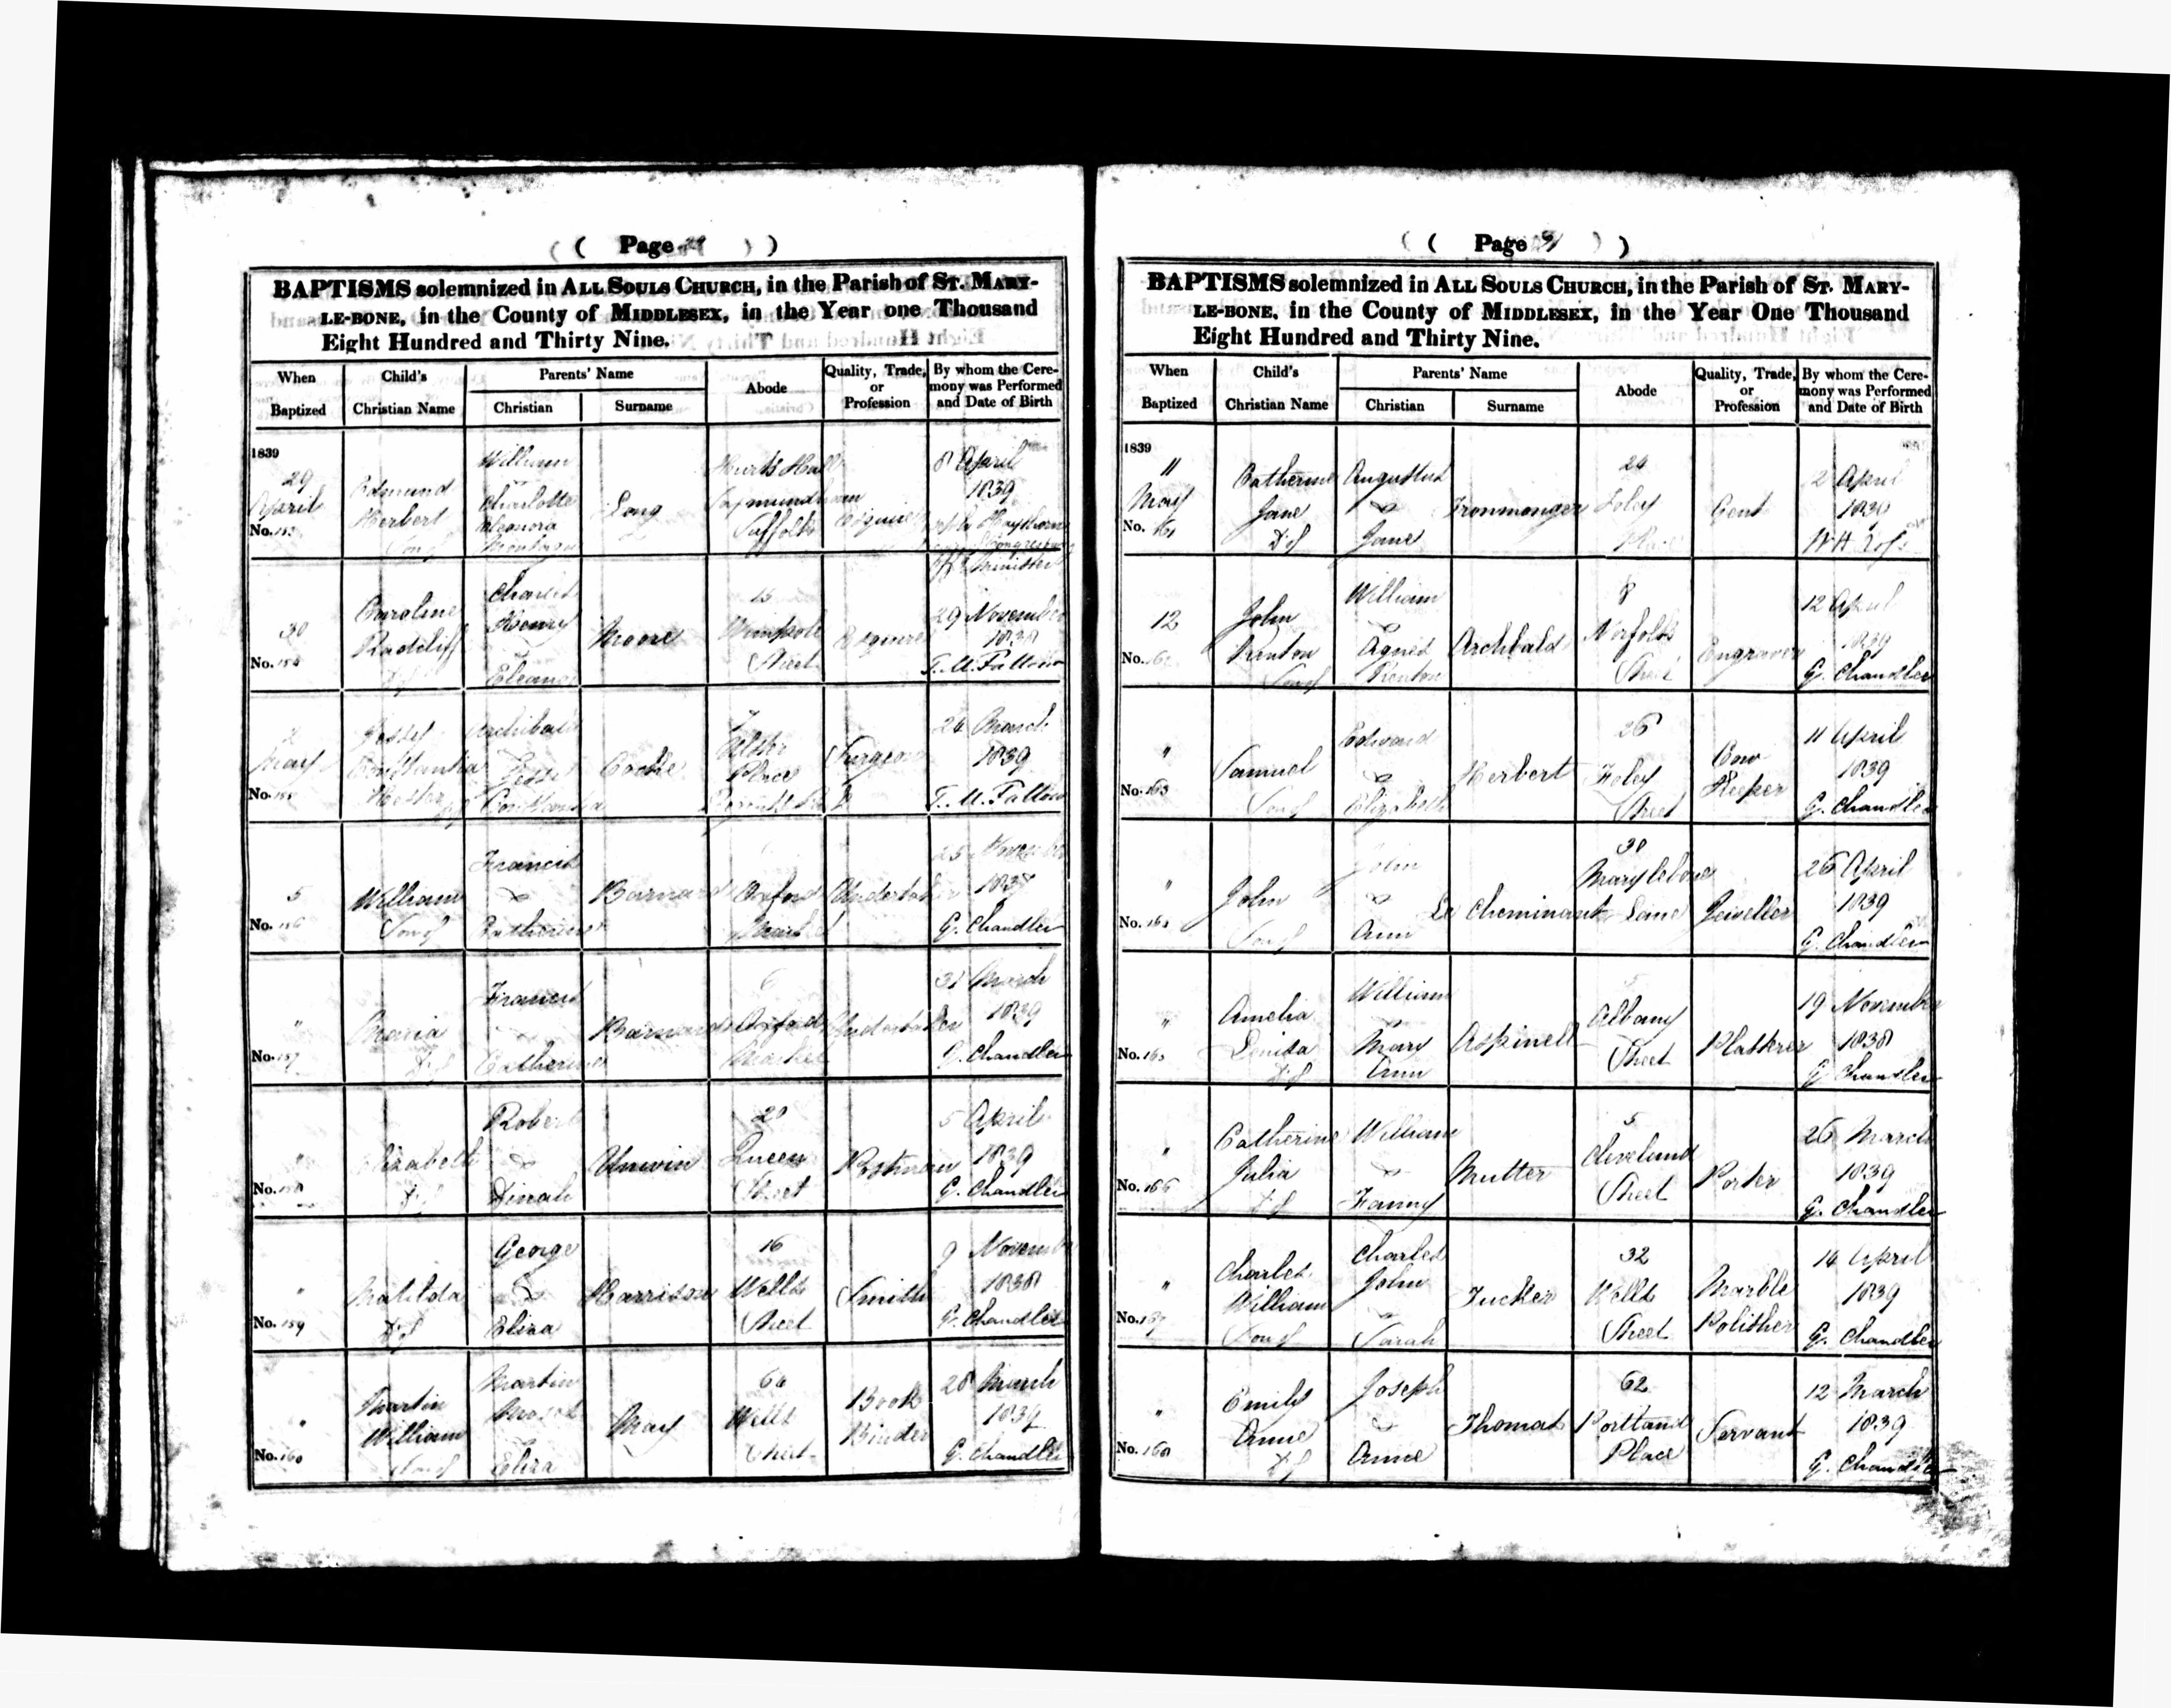 ( Page 29 )
BAPTISMS solemnized in ALL SOULS CHURCH, in the Parish of ST. MARY-
LE-BONE, in the County of MIDDLESEX, in the Year one Thousand
Eight Hundred and Thirty Nine.
When Baptized
Child's Christian Name
Parents' Name
Christian
Surname
Abode
Quality, Trade, or Profession
By whom the Ceremony was Performed and Date of Birth
1839
29 April
No. 153
Edmund Herbert Son of
William Charlotte Eleonora Montagu
Long
Hurts Hall Saxmundham Suffolk
Esquire
8 April 1839
Minister
30
No. 154
Caroline Radcliff D of
Charles Henry & Eleanor
Moore
15 Wimpole Street
Esquire
29 November 1838
T. M. Fallow
May
No. 155
Constantia Hester
Archibald
Cocke
Ulster Place
Surgeon
24 March 1839
T. M. Fallow
5
No. 156
William Son of
Francis & Catherine
Barnard
Oxford Market
Undertaker
25 November 1837
G. Chandler
"
No. 157
Maria D of
Francis & Catherine
Barnard
6 Oxford Market
Undertaker
31 March 1839
G. Chandler
"
No. 158
Elizabeth D of
Robert & Dinah
Unwin
20 Queen Street
Postman
5 April 1839
G. Chandler
"
No. 159
Matilda D of
George & Eliza
Harrison
16 Wells Street
Smith
9 November 1838
G. Chandler
"
No. 160
Martin William Son of
Martin Moses Eliza
May
64 Wells Street
Book Binder
28 March 1839
G. Chandler
( Page 31 )
BAPTISMS solemnized in ALL SOULS CHURCH, in the Parish of ST. MARY-
LE-BONE, in the County of MIDDLESEX, in the Year One Thousand
Eight Hundred and Thirty Nine.
When Baptized
Child's Christian Name
Parents' Name
Christian
Surname
Abode
Quality, Trade, or Profession
By whom the Ceremony was Performed and Date of Birth
1839
11 May
No. 161
Catherine Jane D of
Augustus & Jane
Ironmonger
24 Foley Place
Gent
2 April 1839
12
No. 162
John Renton Son of
William & Agnes Renton
Archbald
8 Norfolk Street
Engraver
12 April 1839
G. Chandler
"
No. 163
Samuel Son of
Edward & Elizabeth
Herbert
26 Foley Street
Cow Keeper
11 April 1839
G. Chandler
"
No. 164
John Son of
John & Ann
Le Cheminant
30 Marylebone Lane
Jeweller
26 April 1839
G. Chandler
"
No. 165
Amelia Louisa D of
William & Mary Ann
Aspinell
5 Albany Street
Plasterer
19 November 1838
G. Chandler
"
No. 166
Catherine Julia D of
William & Fanny
Mutter
5 Cleveland Street
Porter
26 March 1839
G. Chandler
"
No. 167
Charles William Son of
Charles John & Sarah
Tucker
32 Wells Street
Marble Polisher
14 April 1839
G. Chandler
"
No. 168
Emily Anne D of
Joseph & Anne
Thomas
62 Portland Place
Servant
12 March 1839
G. Chandler